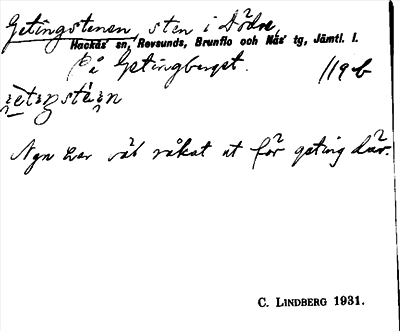 Getingstenen, sten i Dödre,
Hackås' sn, Revsunds, Brunflo och Näs' tg, Jämtl. l.
På Getingberget. 119 b
Ngn har väl råkat ut för geting där.
C. LINDBERG 1931.